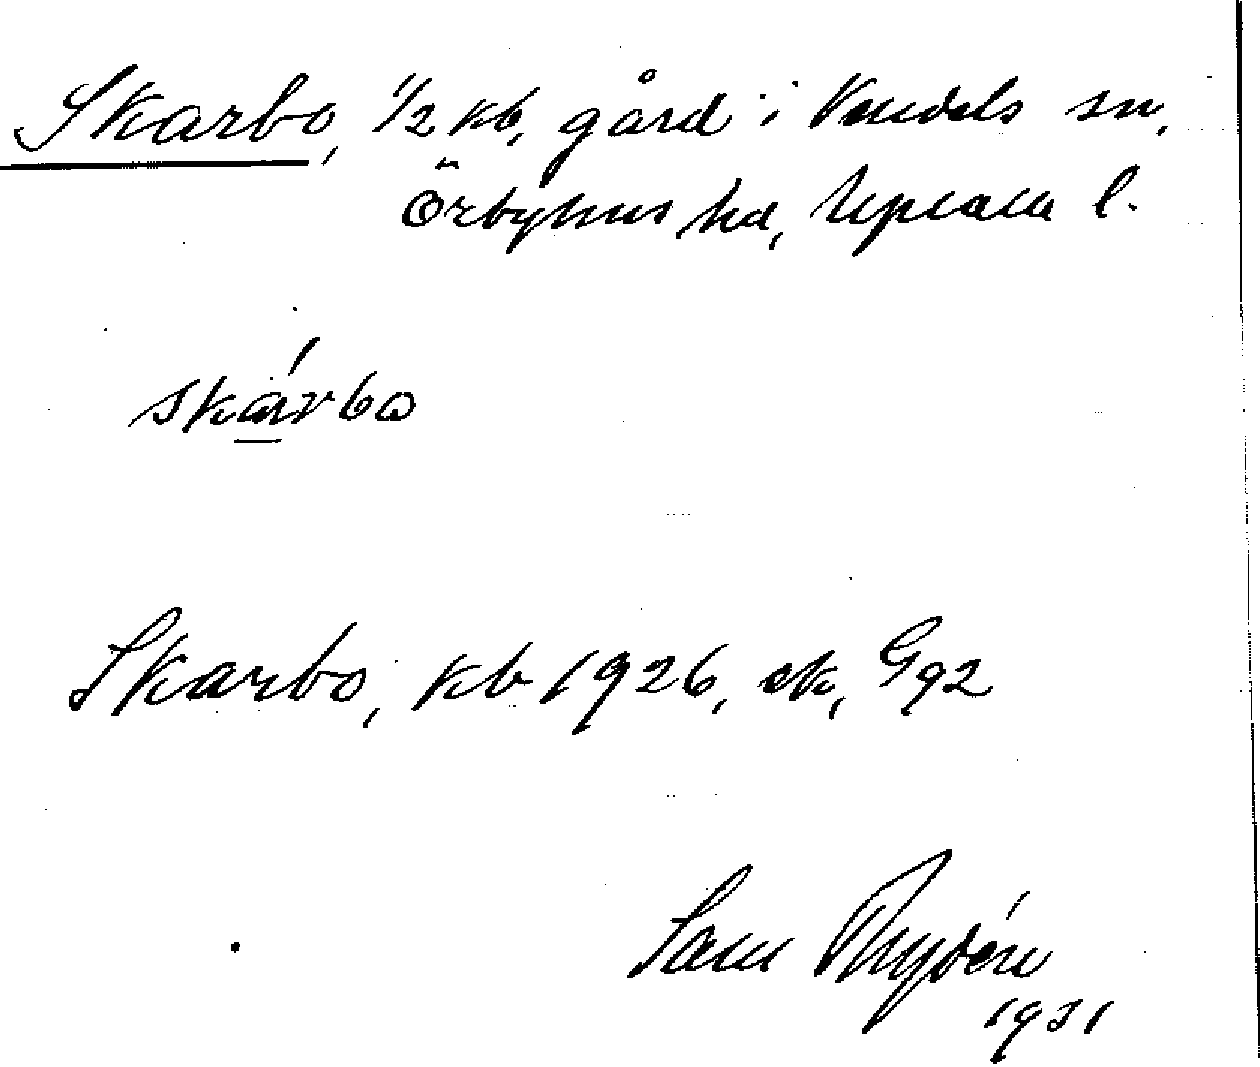 Skarbo, 1/2 kb, gård i Vendels sn,
Örbyhus hd, Upsala l.
skárbo
Skarbo, kb 1926, ek, G92
Sam Rydén
1931